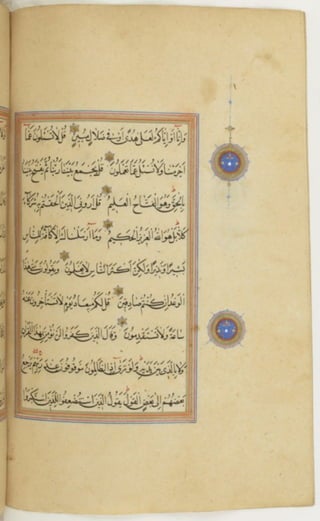 وانا او اياكم لعلى هدى او في ضلال مبين قل لا تسئلون عما
اجرمنا ولا نسئل عما تعملون قل يجمع بيننا ربنا ثم يفتح بيننا
بالحق وهو الفتاح العليم قل اروني الذين الحقتم به شركاء
كلا بل هو الله العزيز الحكيم وما ارسلناك الا كافة للناس
بشيرا ونذيرا ولكن اكثر الناس لا يعلمون ويقولون متى هذا
الوعد ان كنتم صادقين قل لكم ميعاد يوم لا تستأخرون عنه
ساعة ولا تستقدمون وقال الذين كفروا لن نؤمن بهذا القران
ولا بالذي بين يديه ولو ترى اذ الظالمون موقوفون عند ربهم يرجع
بعضهم الى بعض القول يقول الذين استضعفوا للذين استكبروا